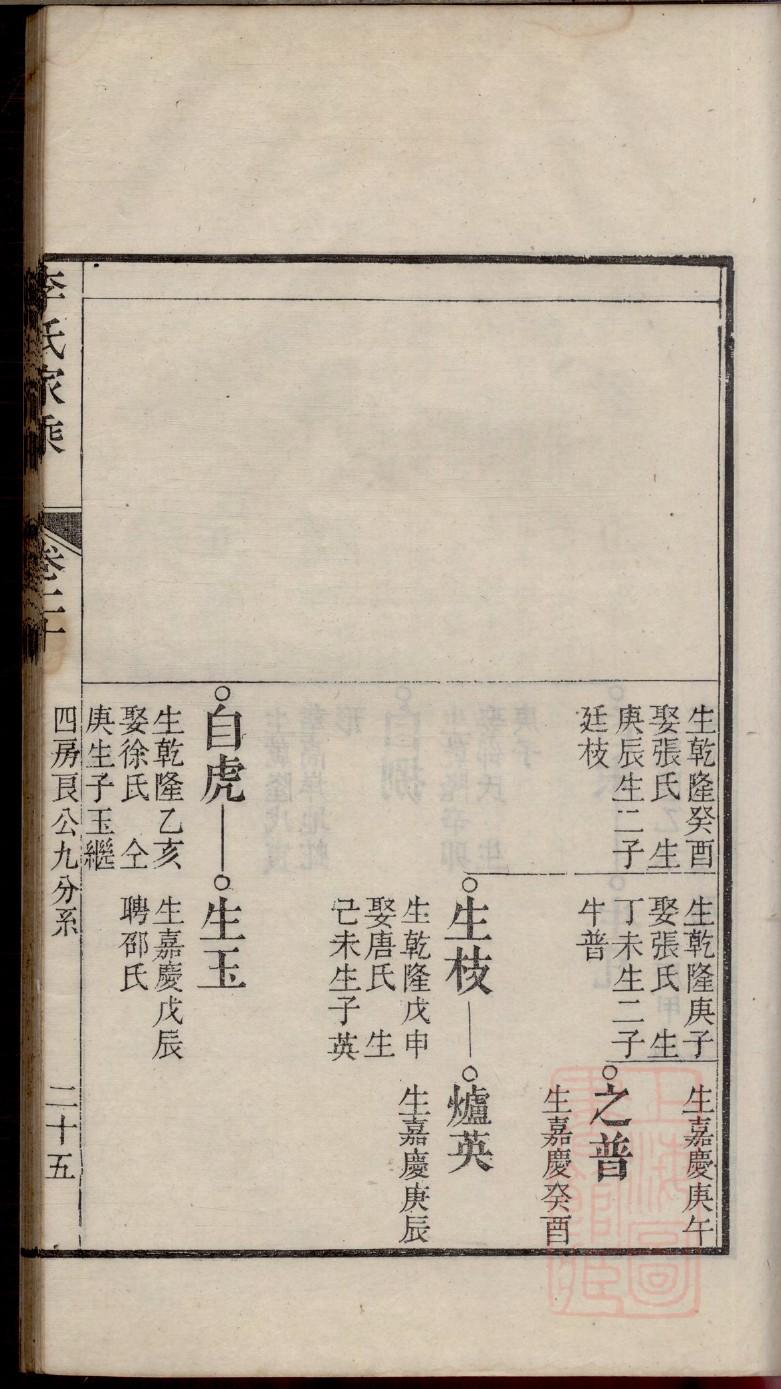 生乾隆癸酉
娶張氏　生
庚辰生二子
廷枝
生乾隆庚子
娶張氏　生
丁未生二子
牛普
生嘉慶庚午
之普
生嘉慶癸酉
生枝
生乾隆戊申
娶唐氏　生
己未生子英
爐英
生嘉慶庚辰
自虎
生乾隆乙亥
娶徐氏　仝
庚生子玉繼
生玉
生嘉慶戊辰
聘邵氏
李氏家乘
卷二十
四房良公九分系
二十五
上海圖